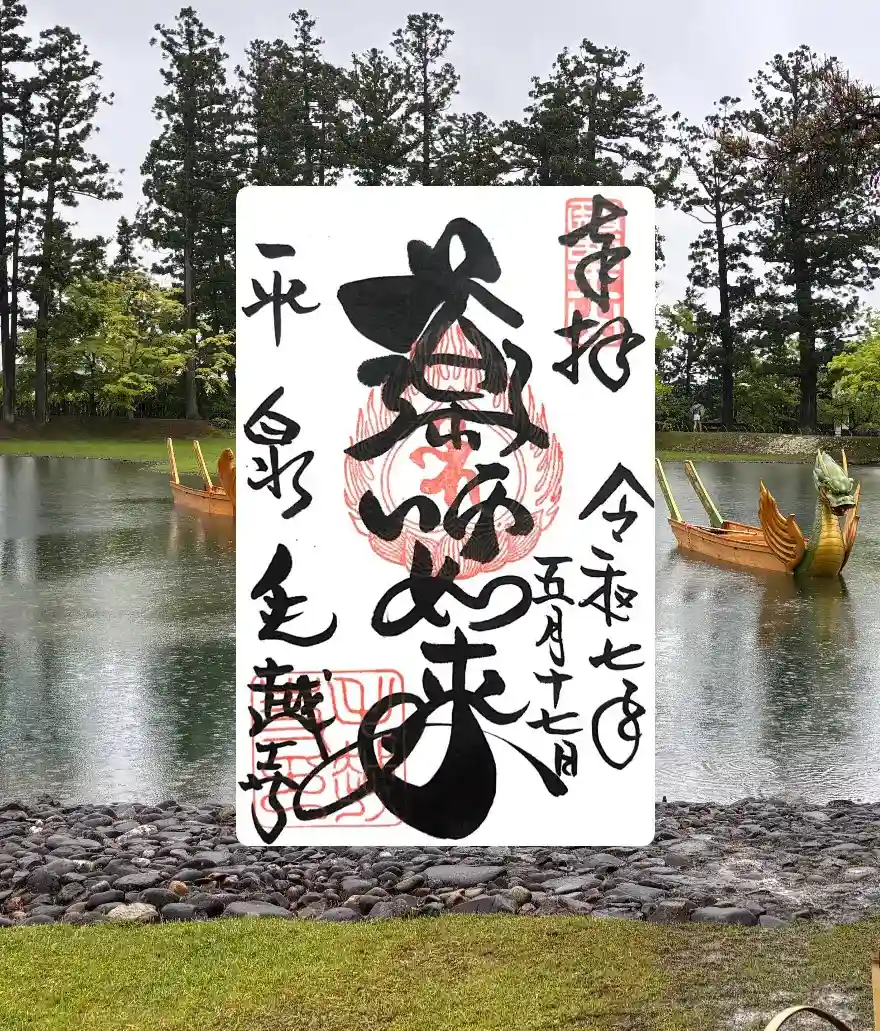 奉拝
令和七年
五月十七日
薬師如来
平泉毛越寺